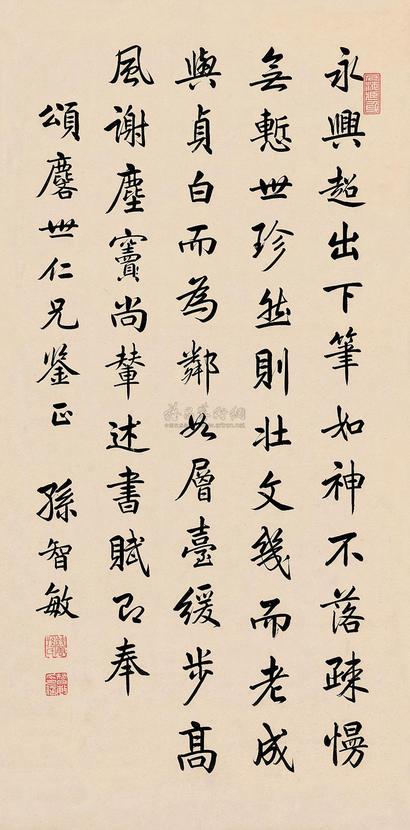 永興超出下筆如神不落疎慢
無慙世珍然則壯文幾而老成
與貞白而為鄰如層臺緩步高
風謝塵竇尚輦述書賦即奉
頌麐世仁兄鉴正 孫智敏